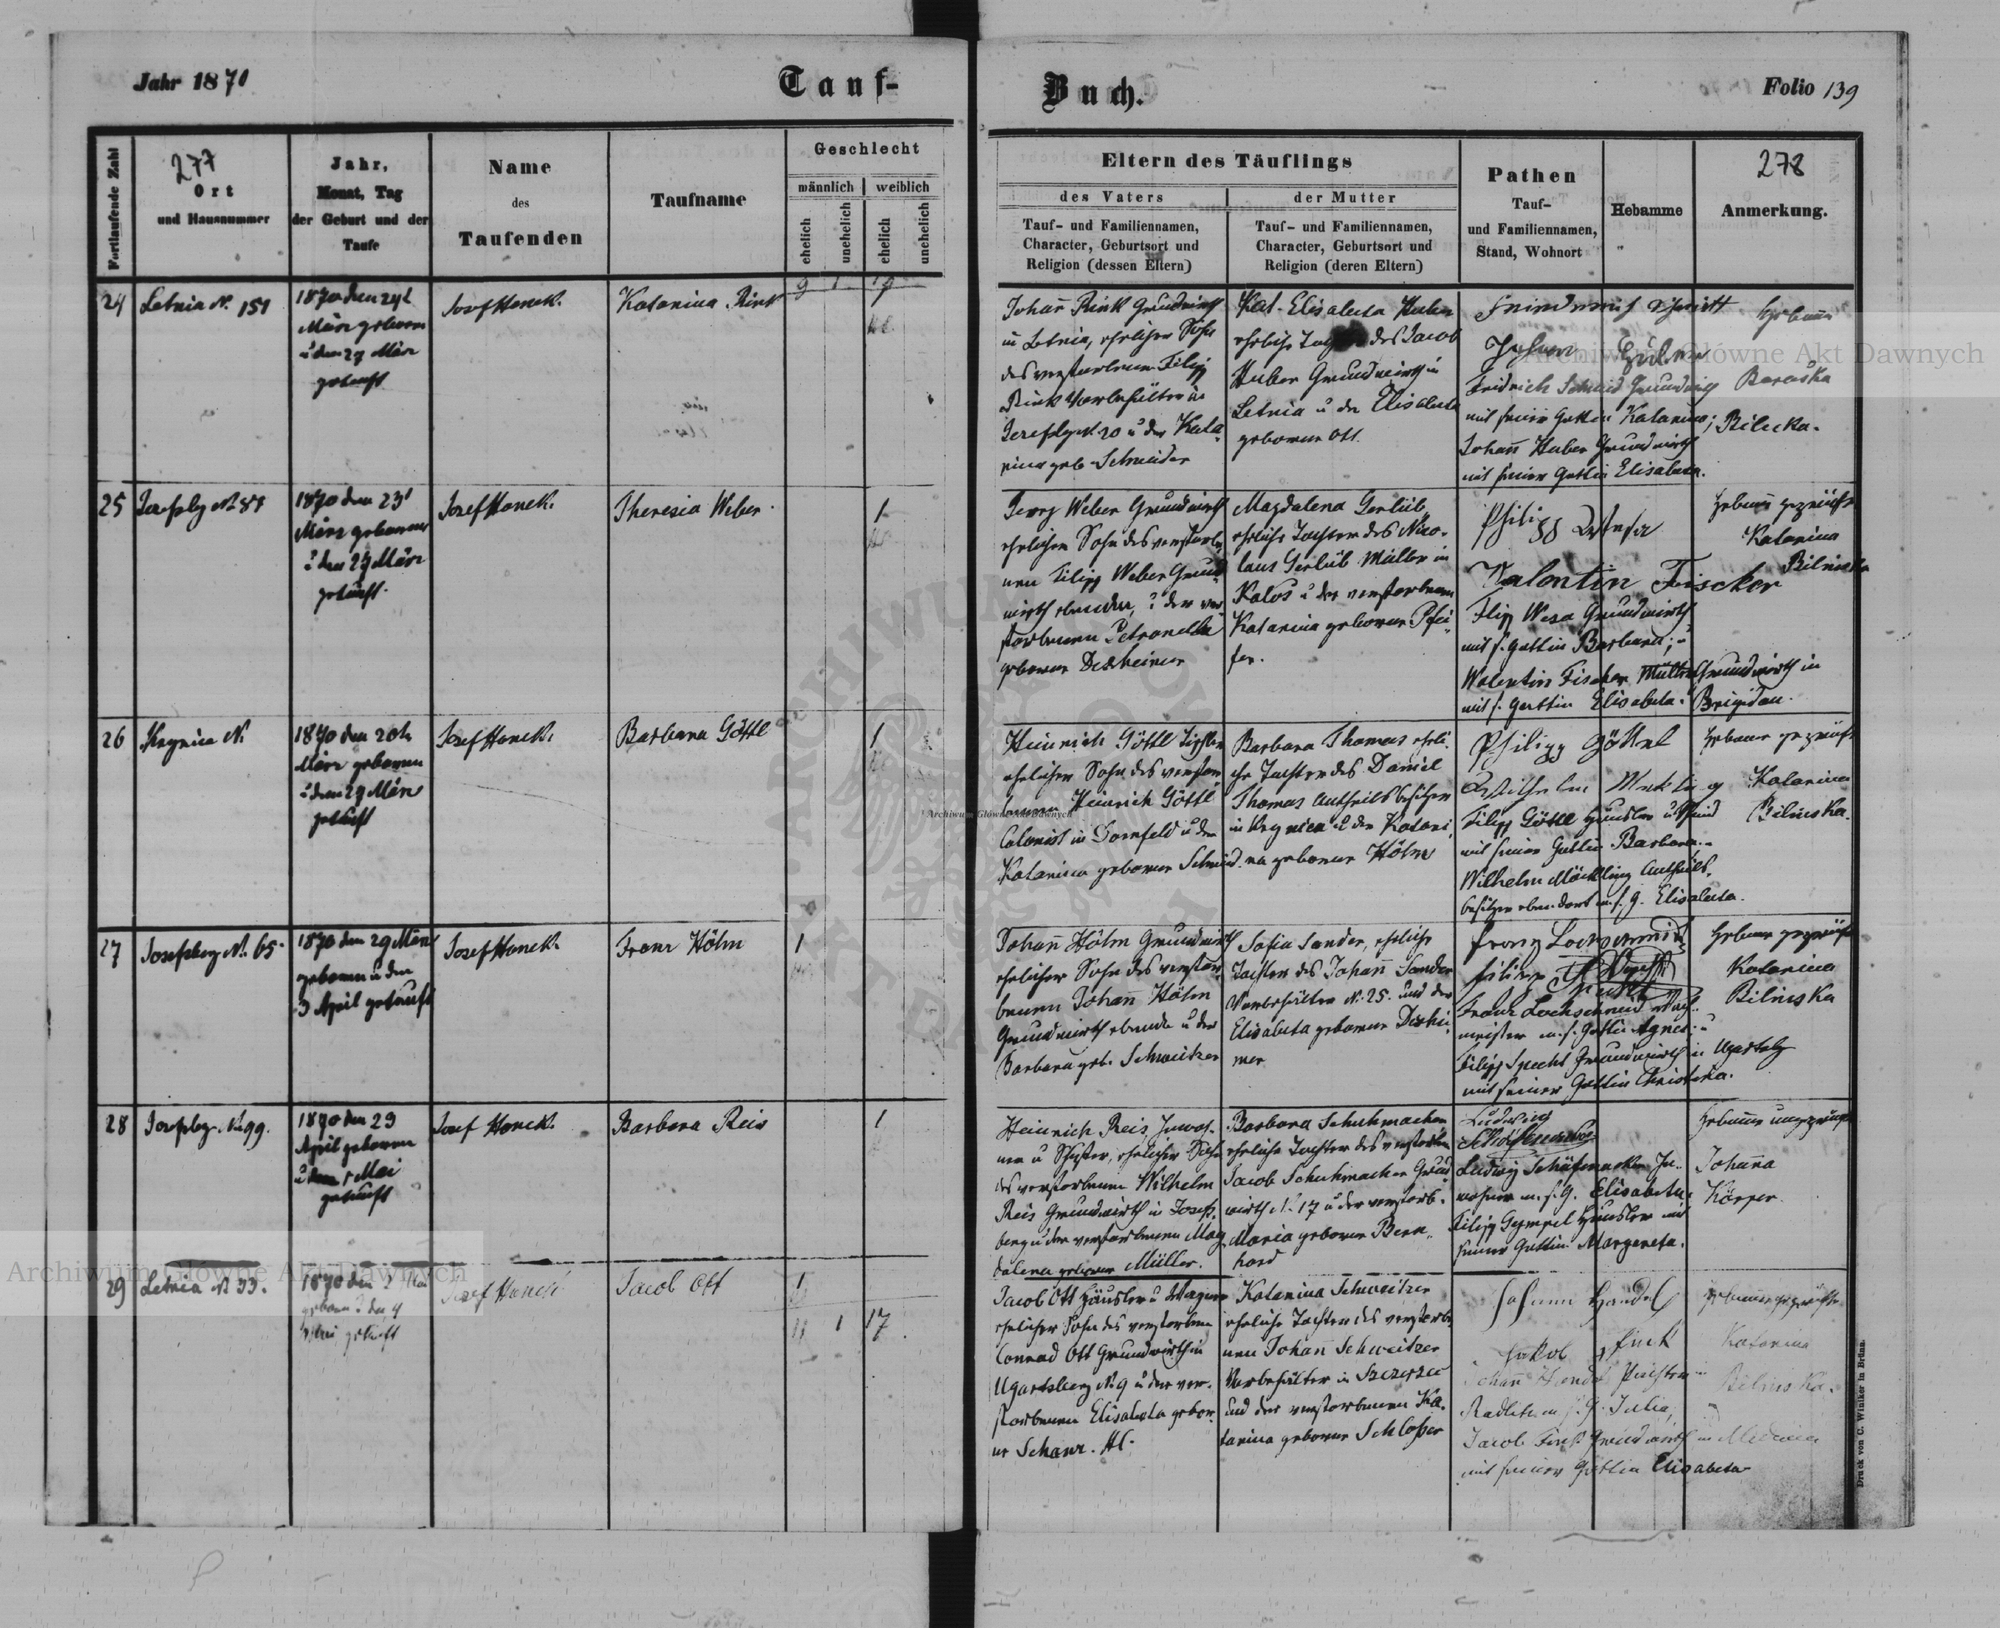 Jahr 1870
Tauf-
Buch.
Folio 139
Fortlaufende Zahl
277
Ort
und Hausnummer
Jahr,
Monat, Tag
der Geburt und der
Taufe
Name
des
Taufenden
Taufname
Geschlecht
männlich
weiblich
ehelich
unehelich
ehelich
unehelich
Eltern des Täuflings
des Vaters
der Mutter
Tauf- und Familiennamen,
Character, Geburtsort und
Religion (dessen Eltern)
Tauf- und Familiennamen,
Character, Geburtsort und
Religion (deren Eltern)
Pathen
Tauf-
und Familiennamen,
Stand, Wohnort
Hebamme
278
Anmerkung.
24
Letnia N. 151
März geboren
u den 29 März
getauft
Josef Honek.
Katarina Rink
9 1
Johañ Rink Grundwirth
in Letnia, ehelicher Sohn
des verstorbenen Filipp
Rink
Josefsbg N 20 u der Kata-
rina geb. Schneider
Kat. Elisabeta Huber
eheliche des Jacob
Huber Grundwirth in
Letnia u der Elisabeta
geborene Ott.
Schmitt
Johan Huber
Fridrich Grundwirth
mit seiner Gattin Katarina;
Johañ Huber Grundwirth
mit seiner Gattin Elisabeta.
Baraška
Bilicka.
25
1870 den 23
März geboren
u den 27 März
getauft.
Josef Honek.
Theresia Weber
1
Georg Weber Grundwirth
ehelicher Sohn des verstorbe-
nen Filipp Weber Grund-
wirth ebenda, u der ver-
storbenen Petronella
geborene Dexheimer
Magdalena Gerlüb
eheliche Tochter des Nico-
laus Gerlüb Müller in
u der verstorbenen
Katarina geborene Pfei-
fer.
Philipp
Valentin Fischer
Filipp Grundwirth
mit s. Gattin Barbara;
Walentin Fischer Grundwirth in
mit s. Gattin Elisabeta. Brigidau.
Hebamme geprüfte
Katarina
Bilinska
26
Krynica N.
1870 den 20t
März geboren
u den 29 März
getauft
Josef Honek.
Barbara Göttl
1
Heinrich Göttl Tischler
ehelicher Sohn des verstor-
benen Heinrich Göttl
Colonist in Dornfeld u der
Katarina geborene Schmid
Barbara Thomas eheli-
che Tochter des Daniel
Thomas Antheilsbesitzer
in Krynica u der Katari-
na geborene Höhn
Philipp Göttel
Wilhelm Mekling
Filipp Göttl Häusler u Schmid
mit seiner Gattin Barbara.
Wilhelm Möckling Antheils-
besitzer ebendort m. s. G. Elisabeta.
Hebamme geprüfte
Katarina
Bilinska.
27
Josefsberg N. 65.
1870 den 29 März
geboren u den
3 April getauft
Josef Honek.
Franz Höhn
1
Johañ Höhn Grundwirth
ehelicher Sohn des verstor-
benen Johañ Höhn
Grundwirth ebenda u der
Barbara geb. Schweitzer
Sofia Sander, eheliche
Tochter des Johañ Sander
N. 25. und der
Elisabeta geborene Dexhei-
mer
Franz Lochschmid
Filipp Specht
Franz Lochschmid
meister m. s. Gattin Agnes. u
Filipp Specht Grundwirth in Ugartsbg
mit seiner Gattin Christina.
Hebamme geprüfte
Katarina
Bilinska
28
Josefsbg. N. 99.
1870 den 29
April geboren
u den 1 Mai
getauft
Josef Honek.
Barbara Reis
1
Heinrich Reis Inwoh-
ner u Schuster, ehelicher Sohn
des verstorbenen Wilhelm
Reis Grundwirth in Josefs-
berg u der verstorbenen Mag-
dalena geborene Müller.
Barbara Schuhmacher
eheliche Tochter des verstorbenen
Jacob Schuhmacher Grund-
wirth N. 17 u der verstorb.
Maria geborene Bern-
hard
Ludwig
Ludwig Schäfmacker In-
wohner m. s. G. Elisabeta.
Filipp Gympel Häusler mit
seiner Gattin Margareta.
Hebamme ungeprüfte
Johañna
Körper
29
Letnia N 33.
1870 den 2 Mai
geboren u den 4
Mai getauft
Josef Honek
Jacob Ott
1
11 1 17
Jacob Ott Häusler u Wagner
ehelicher Sohn des verstorbenen
Conrad Ott Grundwirth in
Ugartsberg N. 9 u der ver-
storbenen Elisabeta gebore-
ne Schanz. HC.
Katarina Schweitzer
eheliche Tochter des verstorbe-
nen Johañ Schweitzer
in Szczerzec
und der verstorbenen Ka-
tarina geborene Schloßer
Johann Handel
Jakob Fink
Johañ Handel Pächter in
m s. G. Julia,
Jacob Fink Grundwirth in Medenice
mit seiner Gattin Elisabeta
Hebamme geprüfte
Katarina
Bilinska.
Druck von C. Winiker in Brünn.
Archiwum Główne Akt Dawnych
Archiwum Główne Akt Dawnych
Archiwum Główne Akt Dawnych